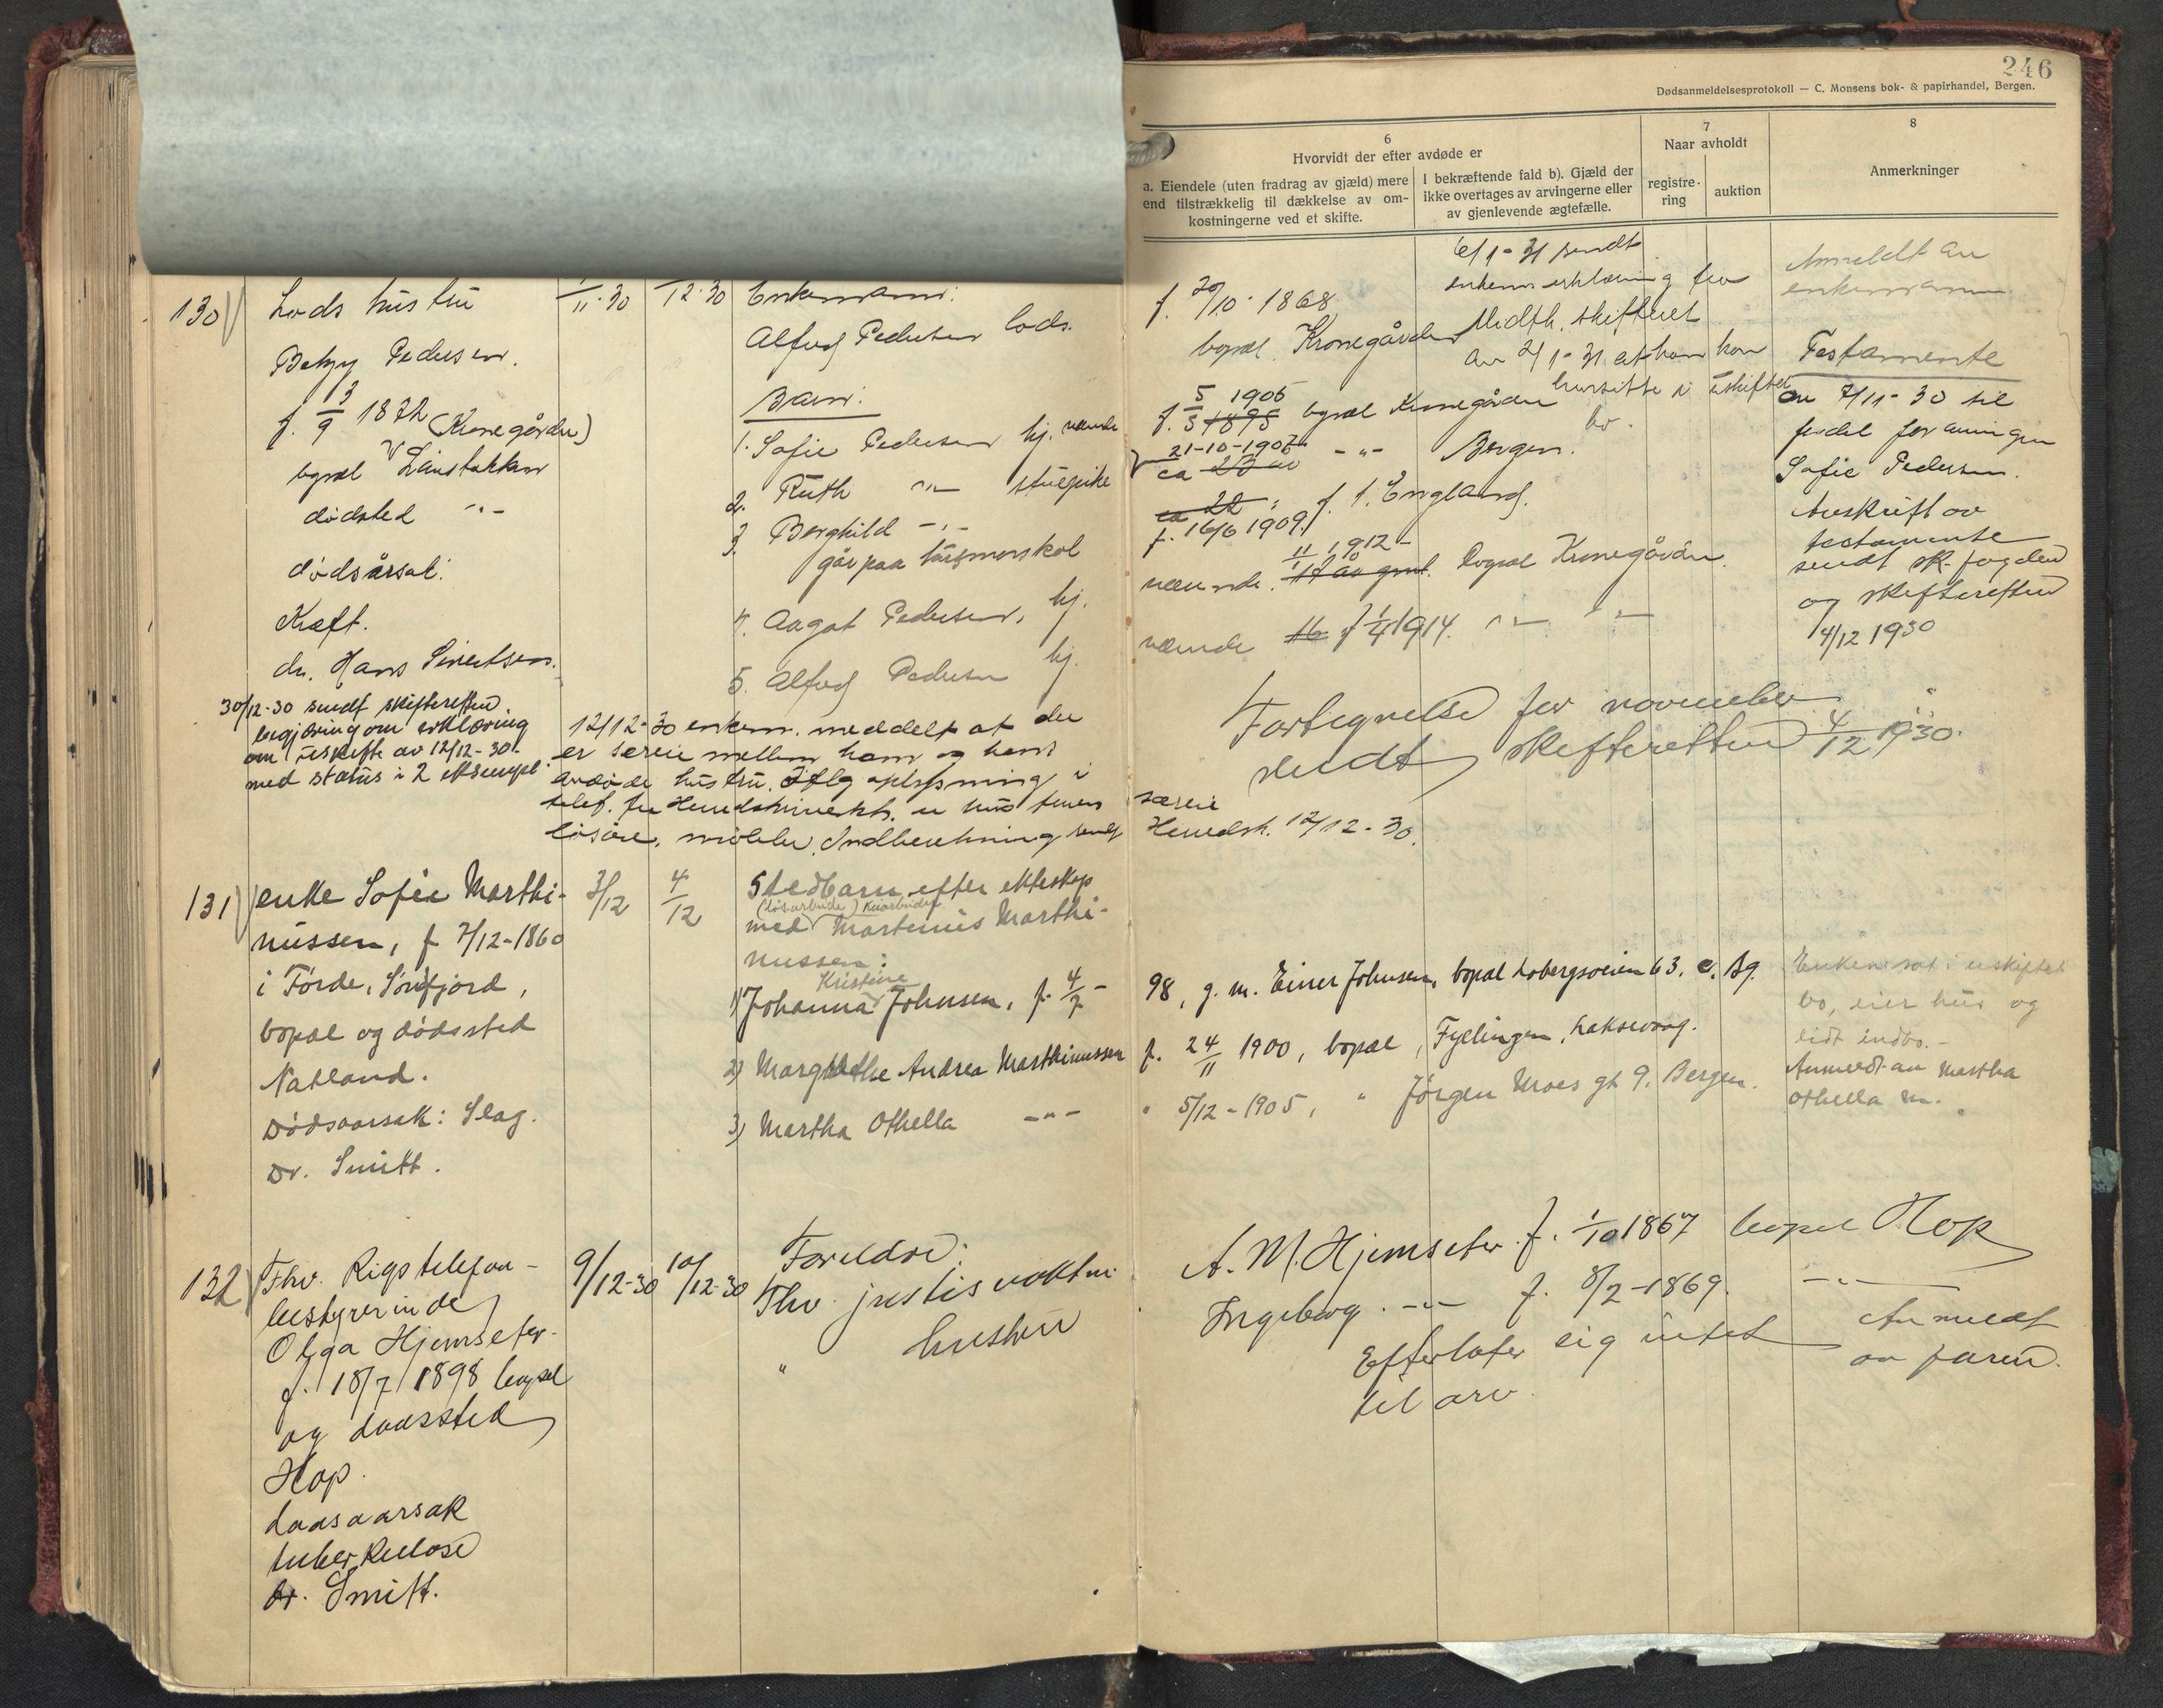 246
Dødsanmeldelsesprotokoll — C. Monsens bok- & papirhandel, Bergen.
6
Hvorvidt der efter avdøde er
a. Eiendele (uten fradrag av gjæld) mere
end tilstrækkelig til dækkelse av om-
kostningerne ved et skifte.
I bekræftende fald b). Gjæld der
ikke overtages av arvingerne eller
av gjenlevende ægtefælle.
7
Naar avholdt
registre-
ring
auktion
8
Anmerkninger
130
Lods hustru
Betzy Pedersen.
f. 13/9 1872 (Kronegården)
bopæl
dødsted -"-
dødsårsak:
Kræft.
dr. Hans Sivertsen.
30/12-30 sendt skifteretten
begjæring om erklæring
om uskifte av 12/12-30.
med status i 2 eksempl.
11.30
12.30
Enkemann:
Alfred Pedersen lods.
Barn:
1. Sofie Pedersen hj. værende
2. Ruth -"- stuepike
3. Borghild -"-
går paa husmorskol
4. Aagot Pedersen, hj.
5. Alfred Pedersen hj.
12/12-30 enkem. meddelt at der
er særeie mellem ham og hans
avdøde hustru. Iflg oplysning i
telef. fra Herredskriverkt. er hus hennes særeie
løsøre, møbler. Indberetning sendt Herredsk. 12/12-30.
f. 20/10. 1868
bopæl. Kronegården
6/1-31 sendt
enkem. erklæring fra
Midth. skifteret
av 2/1-31 at han kan
hensitte i uskiftet
bo.
f. 5/3 1905 1895 bopæl Kronegården
21-10-1907 ca 23 år -"- Bergen.
ca 22 " f. t. England.
f. 16/6 1909.
værende. 11/10 1912 - 17 år gml. Bopæl Kronegården.
værende 16 f 1/4 1914. -"- -"-
Anmeldt av
enkemannen
Testamente
av 7/11-30 til
fordel for
Sofie Pedersen.
Avskrift av
testamente
sendt sk.fogden
og skifteretten
4/12 1930
Fortegnelse for november
sendt skifteretten 4/12 1930.
131
enke Sofie Marthi-
nussen, f 7/12-1860
i Førde, Søndfjord,
bopæl og dødssted
Natland.
Dødsaarsak: Slag.
Dr. Smitt.
3/12
4/12
Stedbarn efter ekteskap
(løsarbeider)
med Martinus Marthi-
nussen:
1) Johanna Kristine Johnsen, f. 4/7 - 98, g. m. Einer Johnsen, bopæl Lobergsveien 63. Bg.
2) Margrethe Andrea Marthinussen f. 24/11 1900, bopæl, Fyllingen, Laksevaag.
3) Martha Othella -"- " 5/12-1905, " Jørgen Moes gt 9. Bergen.
Enken sat i uskiftet
bo, eier hus og
lidt indbo. -
Anmeldt av Martha
Othella M.
132
Fhv. Rigstelefon-
bestyrerinde
Olga Hjemseter.
f. 18/7 1898 bopæl
og daassted
Hop.
daasaarsak
tuberkulose
dr. Smitt.
9/12-30
10/12-30
Foreldre:
Fhv. justisvaktm. A. M. Hjemseter. f. 1/10 1867 bopæl Hop
" hustru Ingeborg. -"- f. 8/2-1869. -"-
Efterlater sig intet
til arv.
Anmeldt
av faren.